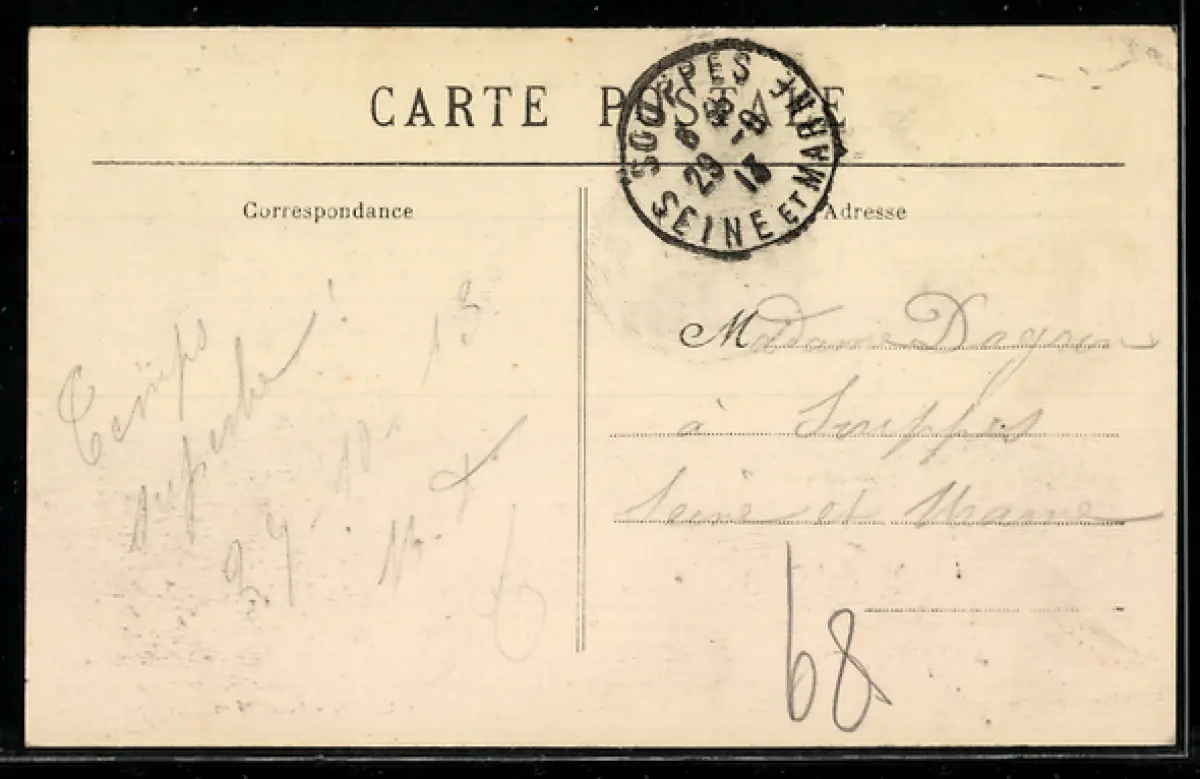 CARTE POSTALE
SOUPPES
SEINE ET MARNE
29 - 8
13
Correspondance
Adresse
Temps
superbe!
27-10-13
Madame Dagron
à Souppes
Seine et Marne
68